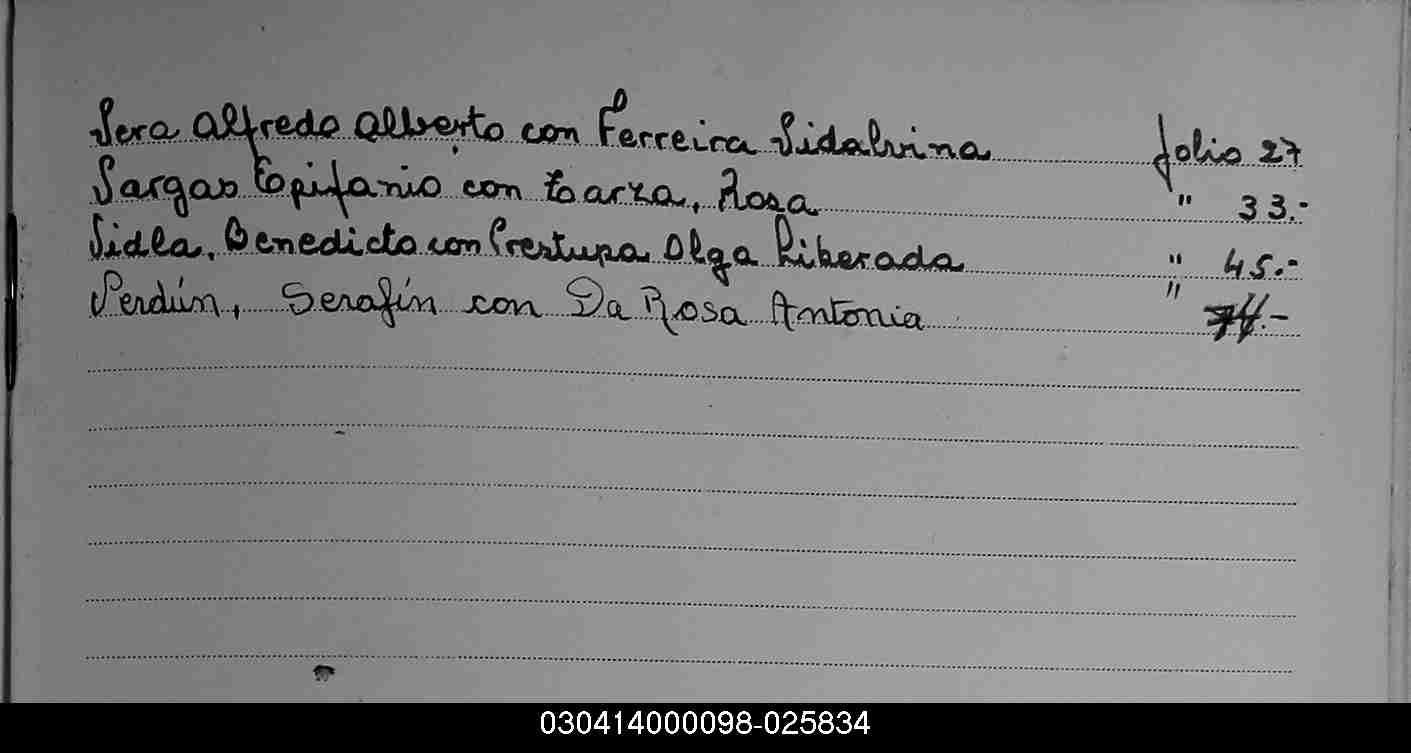 Vera Alfredo Alberto con Ferreira Vidalvina folio 27
Vargas Epifanio con Zarza, Rosa " 33.-
Vidla, Benedicto con Prestupa Olga Liberada " 45.-
Verdún, Serafín con Da Rosa Antonia " 74.-
030414000098-025834